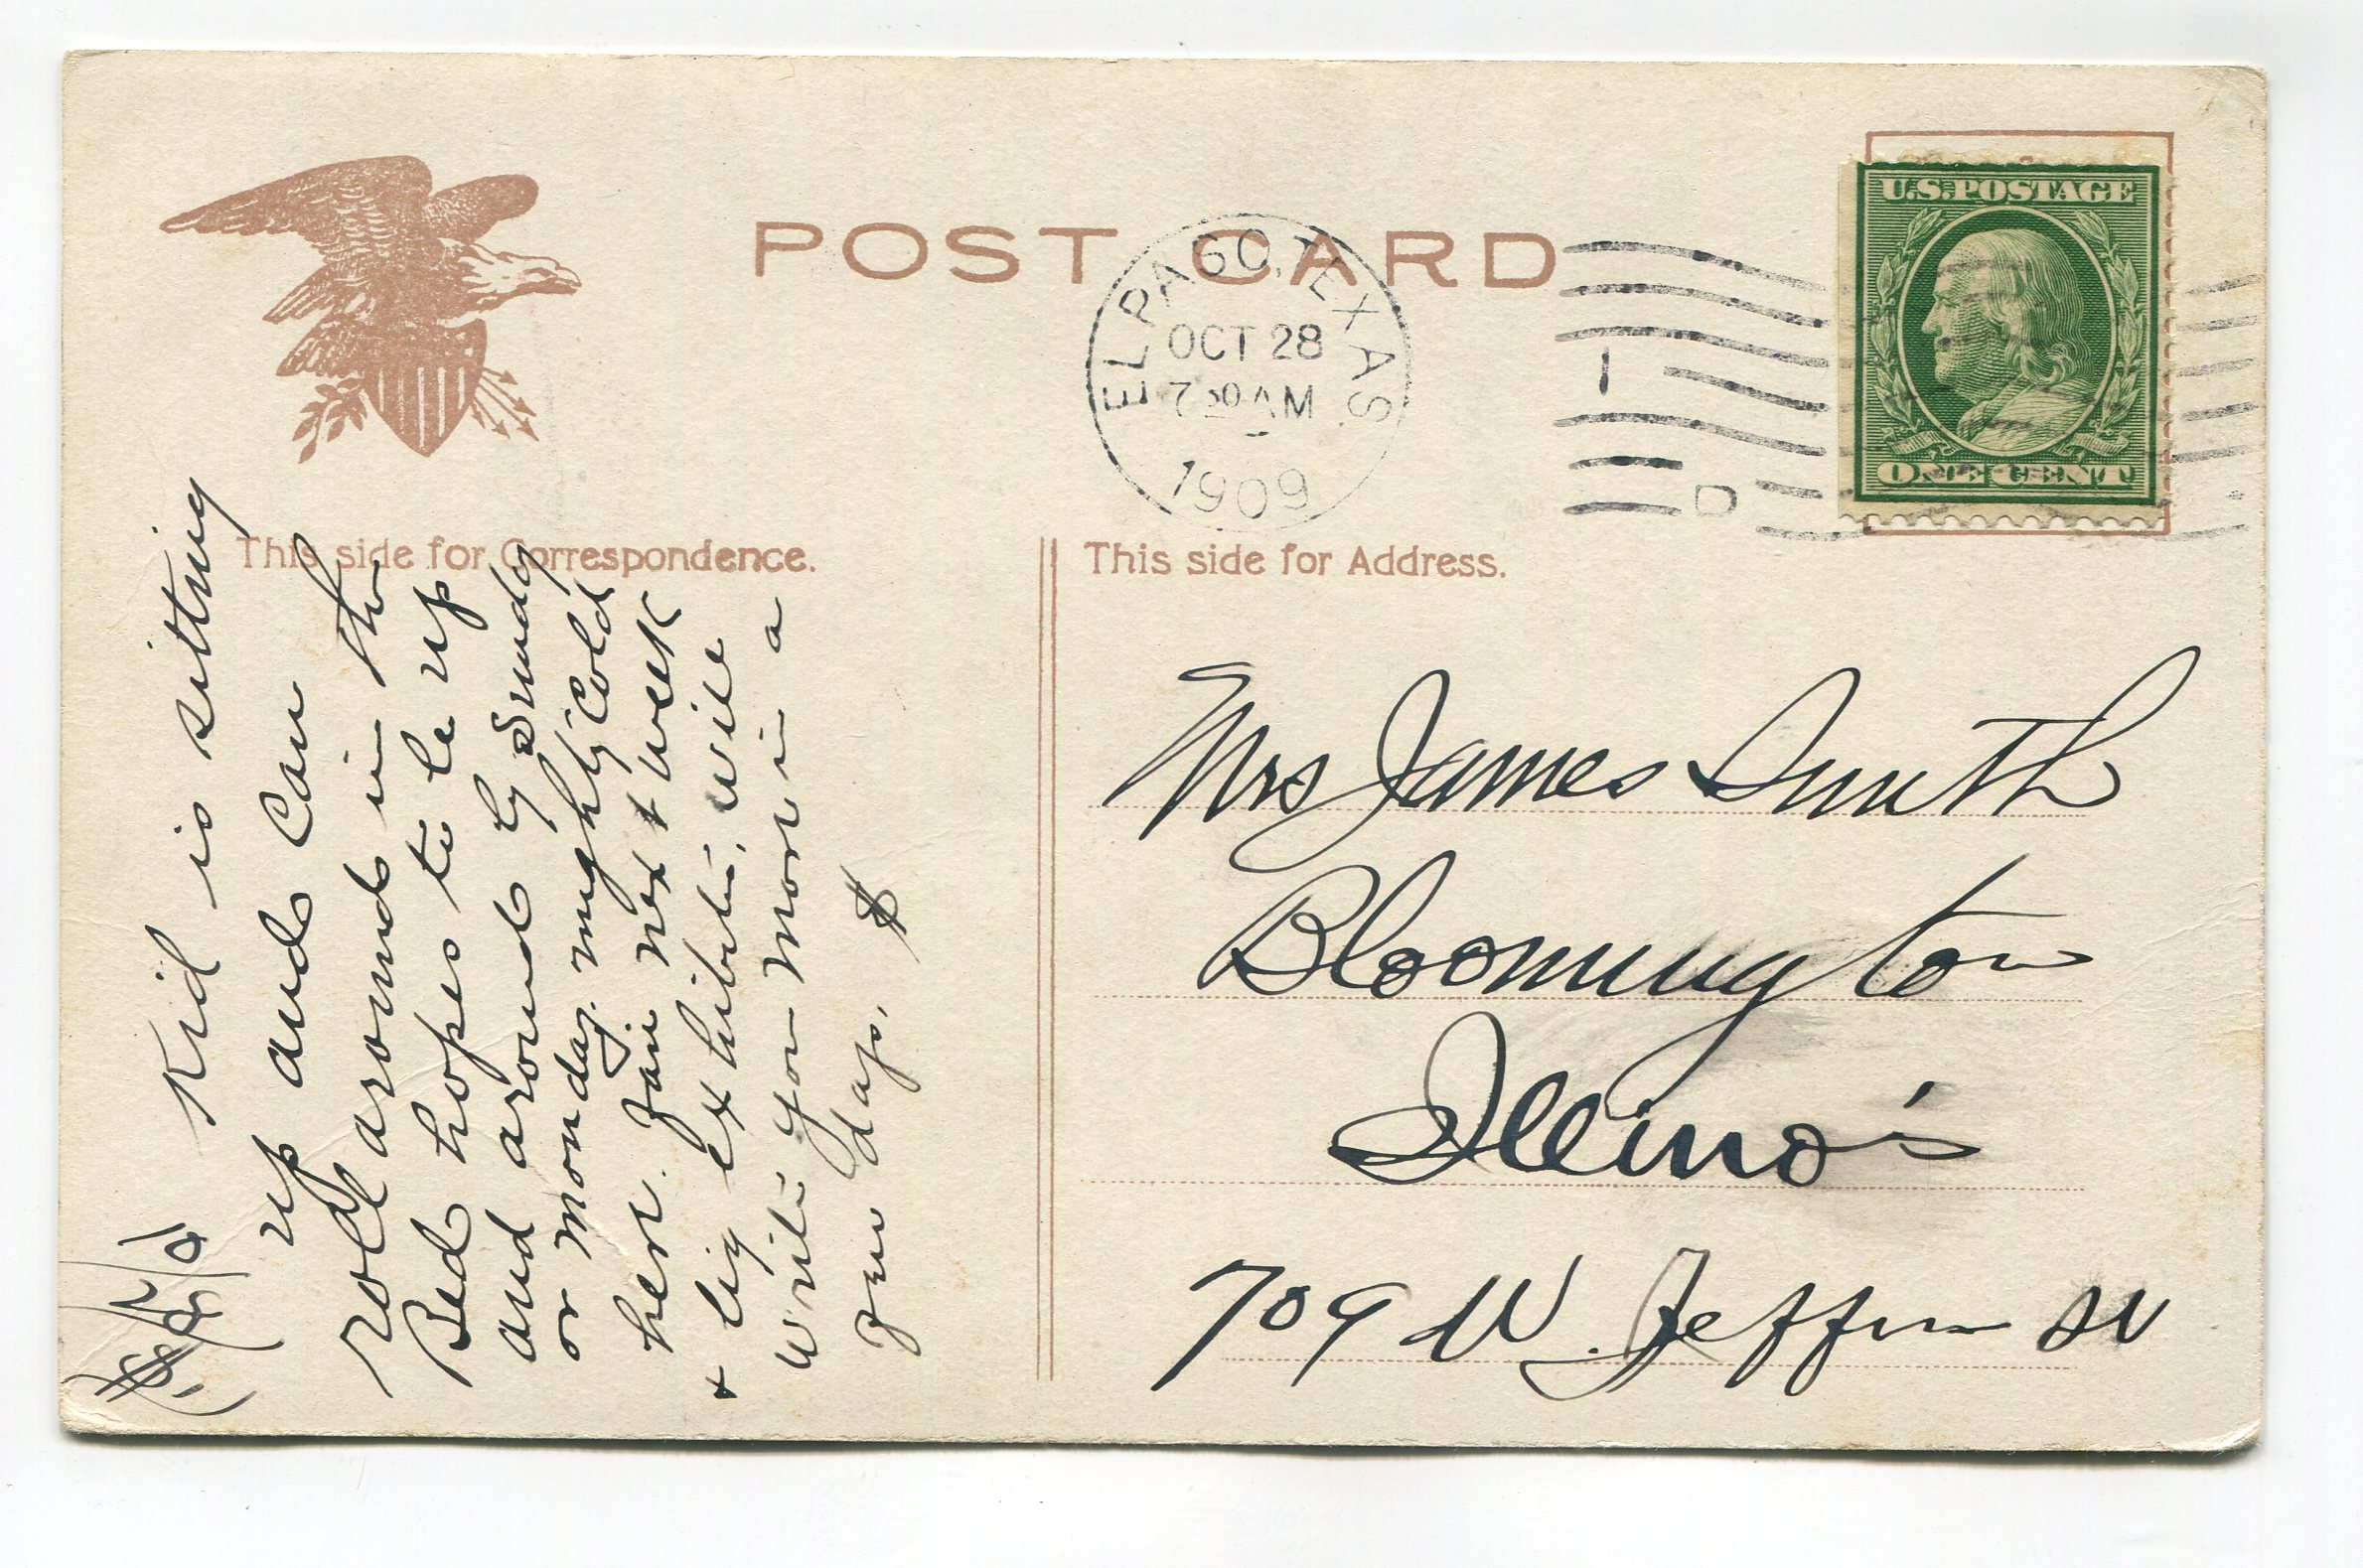 POST CARD
U.S. POSTAGE
ONE CENT
EL PASO, TEXAS
OCT 28
7 30 AM
1909
This side for Correspondence.
This side for Address.
Kid is sitting
up and can
roll around in the
Bed hopes to be up
and around by Sunday
or monday. mighty Cold
here. Fair next week
+ big exhibit, will
write you more in a
few days.
Mrs James Smith
Bloomington
Illinois
709 W. Jefferson St